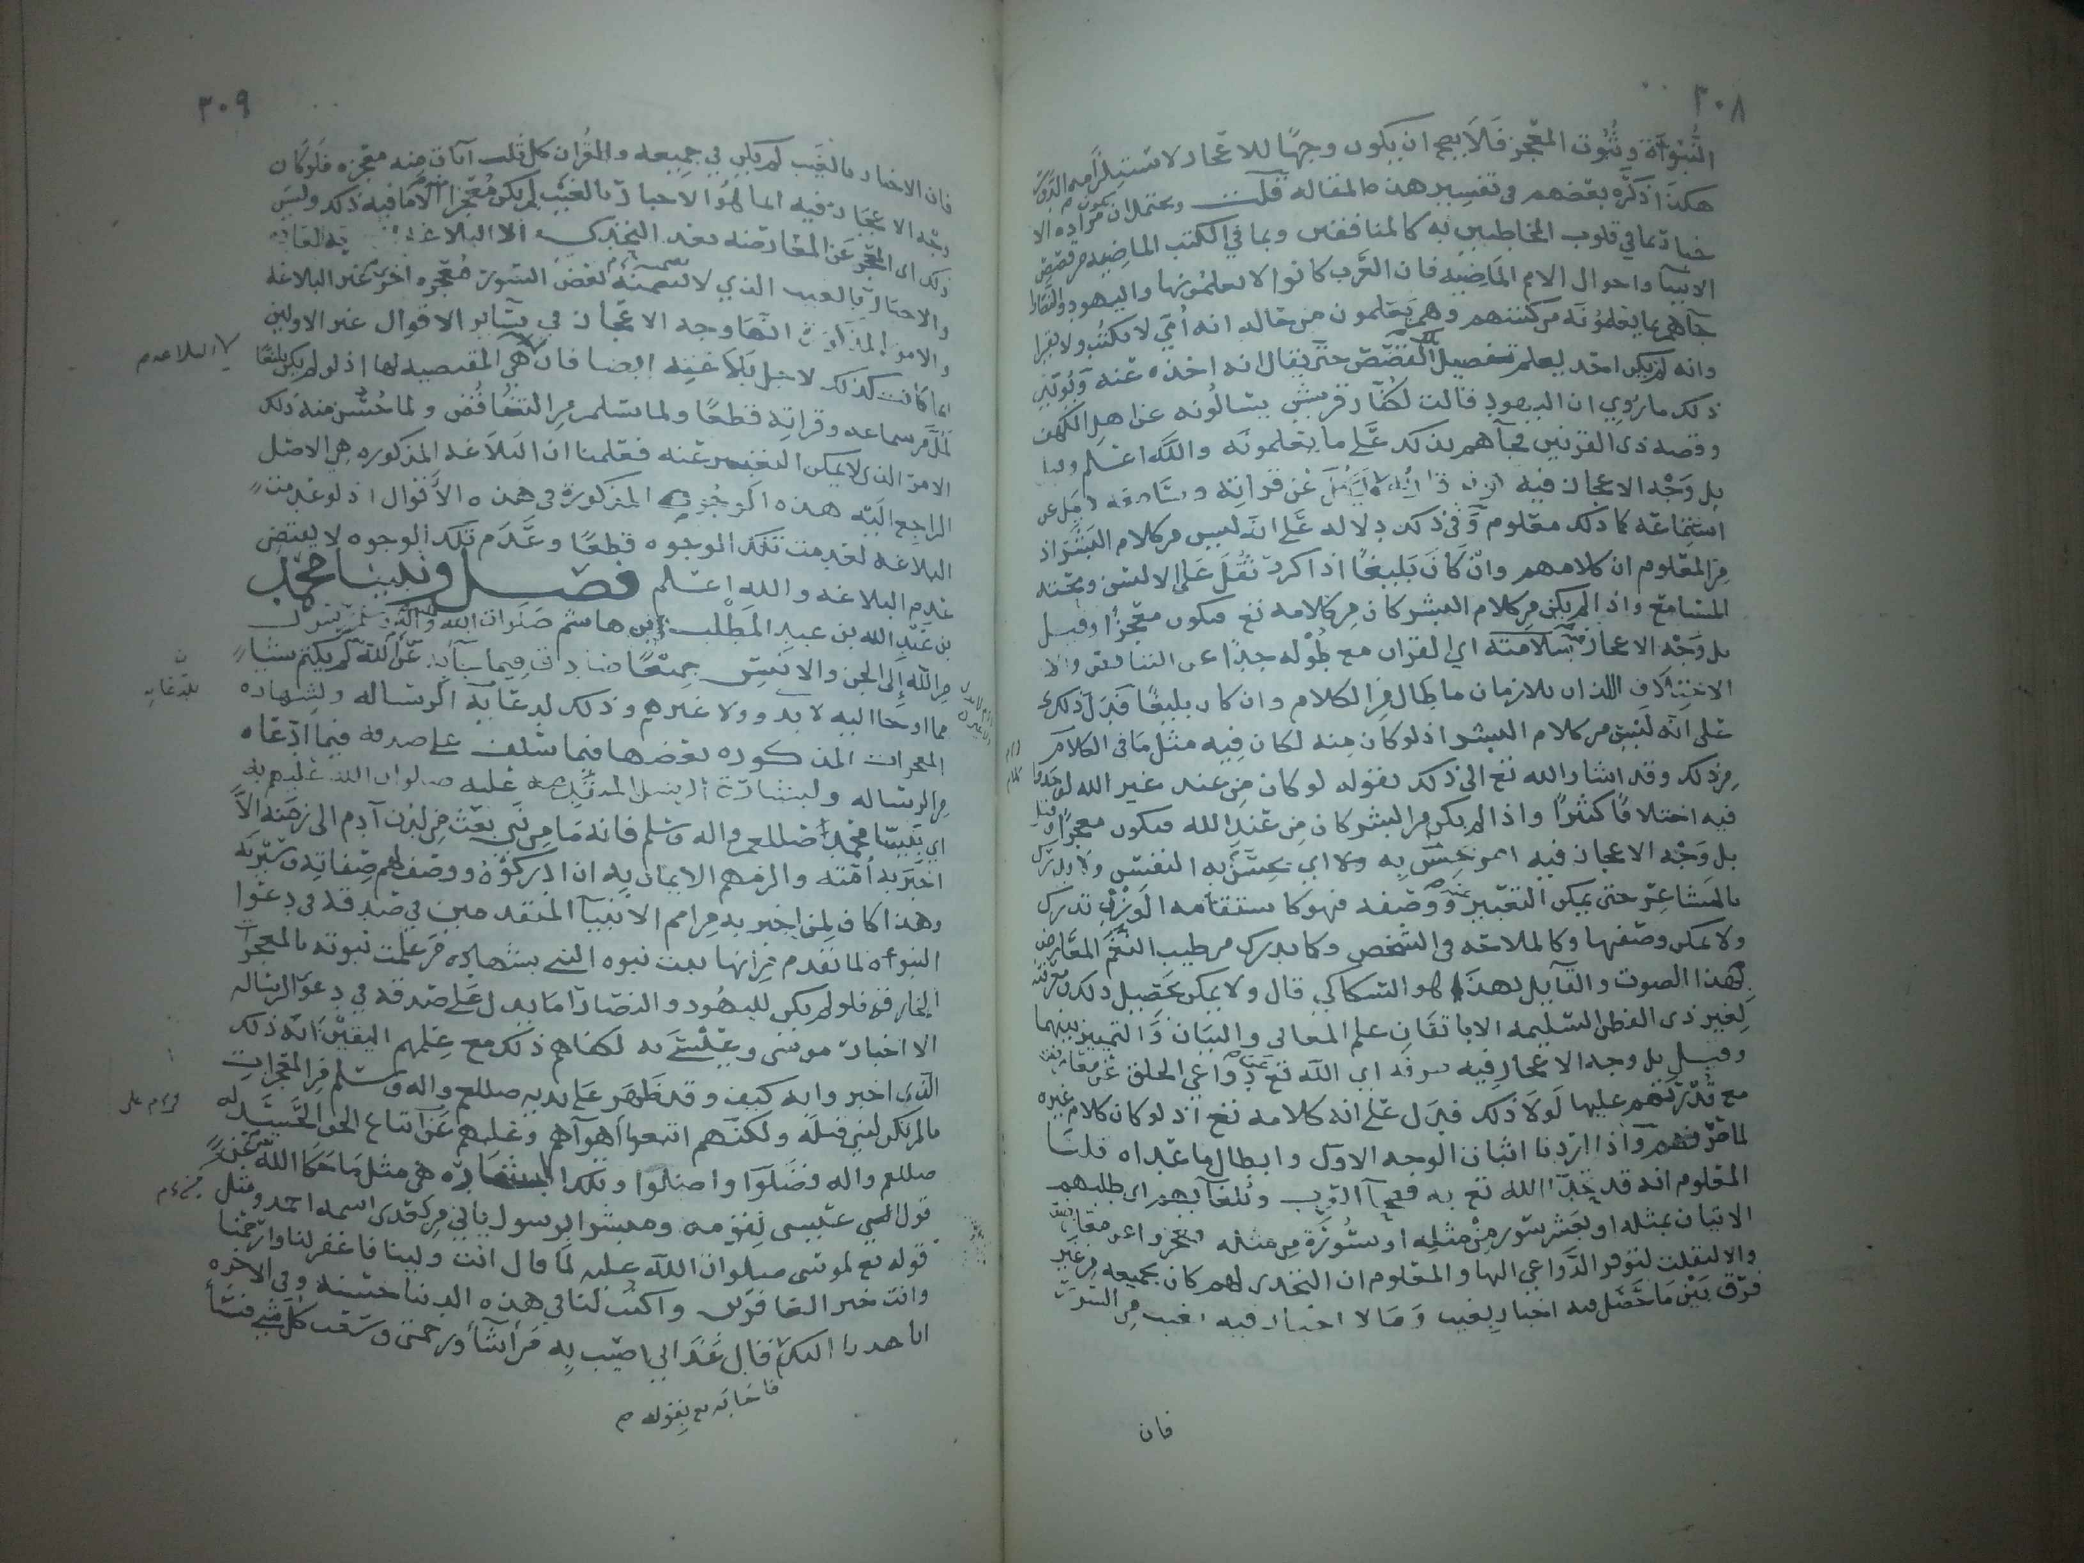 ٣٠٨
النبوآة وثبوت المعجز فلا يصح ان يكون وجهًا للاعجاز لاستلزامه الدور
هكذا ذكره بعضهم في تفسير هذه المقاله قلت ويحتمل ان مراده الا
خبار بما في قلوب المخاطبين به كالمنافقين وبما في الكتب الماضيه من قصص
الانبيآ واحوال الامم الماضيه فان العرب كانوا لا يعلمونها واليهود والنصارا
جآهم بما يعلمونه من كتبهم وهم يعلمون من حاله انه امي لا يكتب ولا يقرا
وانه لم يكن احد يعلم تفصيل القصص حتى يقال انه اخذه عنه ويويد
ذلك ما روي ان اليهود قالت لكفار قريش يسالونه عن اهل الكهف
وقصه ذي القرنين فجآهم بذلك على ما يعلمونه والله اعلم وقيل
بل وجه الاعجاز فيه كون قارئه لا يمل عن قراته وسامعه لا يمل عن
استماعه كما ذلك معلوم وفي ذلك دلاله على انه ليس من كلام البشر اذ
من المعلوم ان كلامهم وان كان بليغًا اذا كرر ثقل على الالسن ومجته
المسامع واذا لم يكن من كلام البشر كان من كلامه تع فيكون معجزًا وقيل
بل وجه الاعجاز سلامته اي القران مع طوله جدًا عن التناقض والا
الاختلاف اللذان يلازمان ما طال من الكلام وان كان بليغًا فدل ذلك
على انه ليس من كلام البشر اذ لو كان منه لكان فيه مثل ما في الكلام
من ذلك وقد اشار الله تع الى ذلك بقوله لو كان من عند غير الله لوجدوا
فيه اختلافًا كثيرًا واذا لم يكن من البشر كان من عند الله فيكون معجزًا وقيل
بل وجه الاعجاز فيه امر يحس به اي يحس به النفس ولا يدرك
بالمشاعر حتى يمكن التعبير عنه ووصفه فهو كاستقامه الوزن تدرك
ولا يمكن وصفها وكالملاحه في الشخص وكما يدرك من طيب النغم العارض
لهذا الصوت والقايل بهذا هو السكاكي قال ولا يمكن تحصيل ذلك ومعرفته
لغير ذي الفطن السليمه الا باتقان علم المعاني والبيان والتمييز بينهما
وقيل بل وجه الاعجاز فيه صرفه اي الله تع دواعي الخلق عن معارضته
مع قدرتهم عليها لولا ذلك فيدل على انه كلامه تع اذ لو كان كلام غيره
لما صرفهم واذا اردنا اثبات الوجه الاول وابطال ما عداه قلنا
المعلوم انه قد تحدا الله تع به فصحآ العرب وبلغآيهم اي طلبهم
الاتيان بمثله او بعشر سور من مثله او سورة من مثله فعجزوا عن معارضته
والا لنقلت لتوفر الدواعي اليها والمعلوم ان التحدي لهم كان بجميعه من غير
فرق بين ما حصل فيه اخبار بغيب وما لا اخبار فيه بغيب من السور
فان
٣٠٩
فان الاخبار بالغيب لم يكن في جميعه والقران كل ثلث ايات منه معجزه فلو كان
وجه الاعجاز فيه انما هو الاخبار بالغيب لم يكن معجزا الا ما فيه ذلك وليس
ذلك الى العجز عن المعارضه بعد التحدي الا البلاغه
والاخبار بالغيب الذي لا تعمه بعض السور معجزه اخرى غير البلاغه
والامور المذكورة انها وجه الاعجاز في سآير الاقوال غير الاولين
انما كانت كذلك لاجل بلاغته ايضا فان هي المقتضيه لها اذ لو لم يكن بليغًا
لمل من سماعه وقراته قطعًا ولما سلم من التناقض ولما حسن منه ذلك
الامر الذي لا يمكن التعبير عنه فعلمنا ان البلاغه المذكوره هي الاصل
الراجع اليه هذه الوجوه المذكورة في هذه الاقوال اذ لو عدمت
البلاغه لعدمت تلك الوجوه قطعًا وعدم تلك الوجوه لا يقتضي
عدم البلاغه والله اعلم فصل ونبينا محمد
بن عبد الله بن عبد المطلب بن هاشم صلوات الله عليه واله وسلم رسول
من الله الى الجن والانس جميعًا صادق فيما جآ به عن الله لم يكتم شيئا
مما اوحا اليه لابد وولا غيره وذلك لدعآيه الرساله ولشهاده
المعجزات المذكوره بعضها فيما سلف على صدقه فيما ادعاه
من الرساله ولبشارة الرسل المتقدمين عليه صلوات الله عليهم به
اي بنبينا محمد صللعم واله وسلم فانه ما من نبي بعث من لدن آدم الى زمنه الا
اخبر به امته والزمهم الايمان به ان ادركوه ووصف لهم صفاته وسيرته
وهذا كاف لمن اخبر به من امم الانبيآ المتقدمين في صدقه في دعوا
النبوءه لما تقدم من انها تثبت نبوه النبي بشهاده من علمت نبوته بالمعجزات
الخارقه فلو لم يكن لليهود والنصارا ما يدل على صدقه في دعوى الرساله
الا اخبار موسى وعيسى به لكفاهم ذلك مع علمهم اليقين انه ذلك
الذي اخبروا به كيف وقد ظهر على يديه صللعم واله وسلم من المعجزات
ما لم يكن لنبي قبله ولكنهم اتبعوا اهوآهم وغلبهم عن اتباع الحق الحسد له
صللعم واله فضلوا واضلوا وتلك البشاره هي مثل ما حكا الله تع عن
قول المسيح عيسى لقومه ومبشرًا برسول ياتي من بعدي اسمه احمد ومثل
قوله تع لموسى صلوات الله عليه لما قال انت ولينا فاغفر لنا وارحمنا
وانت خير الغافرين واكتب لنا في هذه الدنيا حسنه وفي الاخره
انا هدنا اليك قال عذابي اصيب به من اشآ ورحمتي وسعت كل شي فسا
فاجابه تع بقوله م
البلاغه م